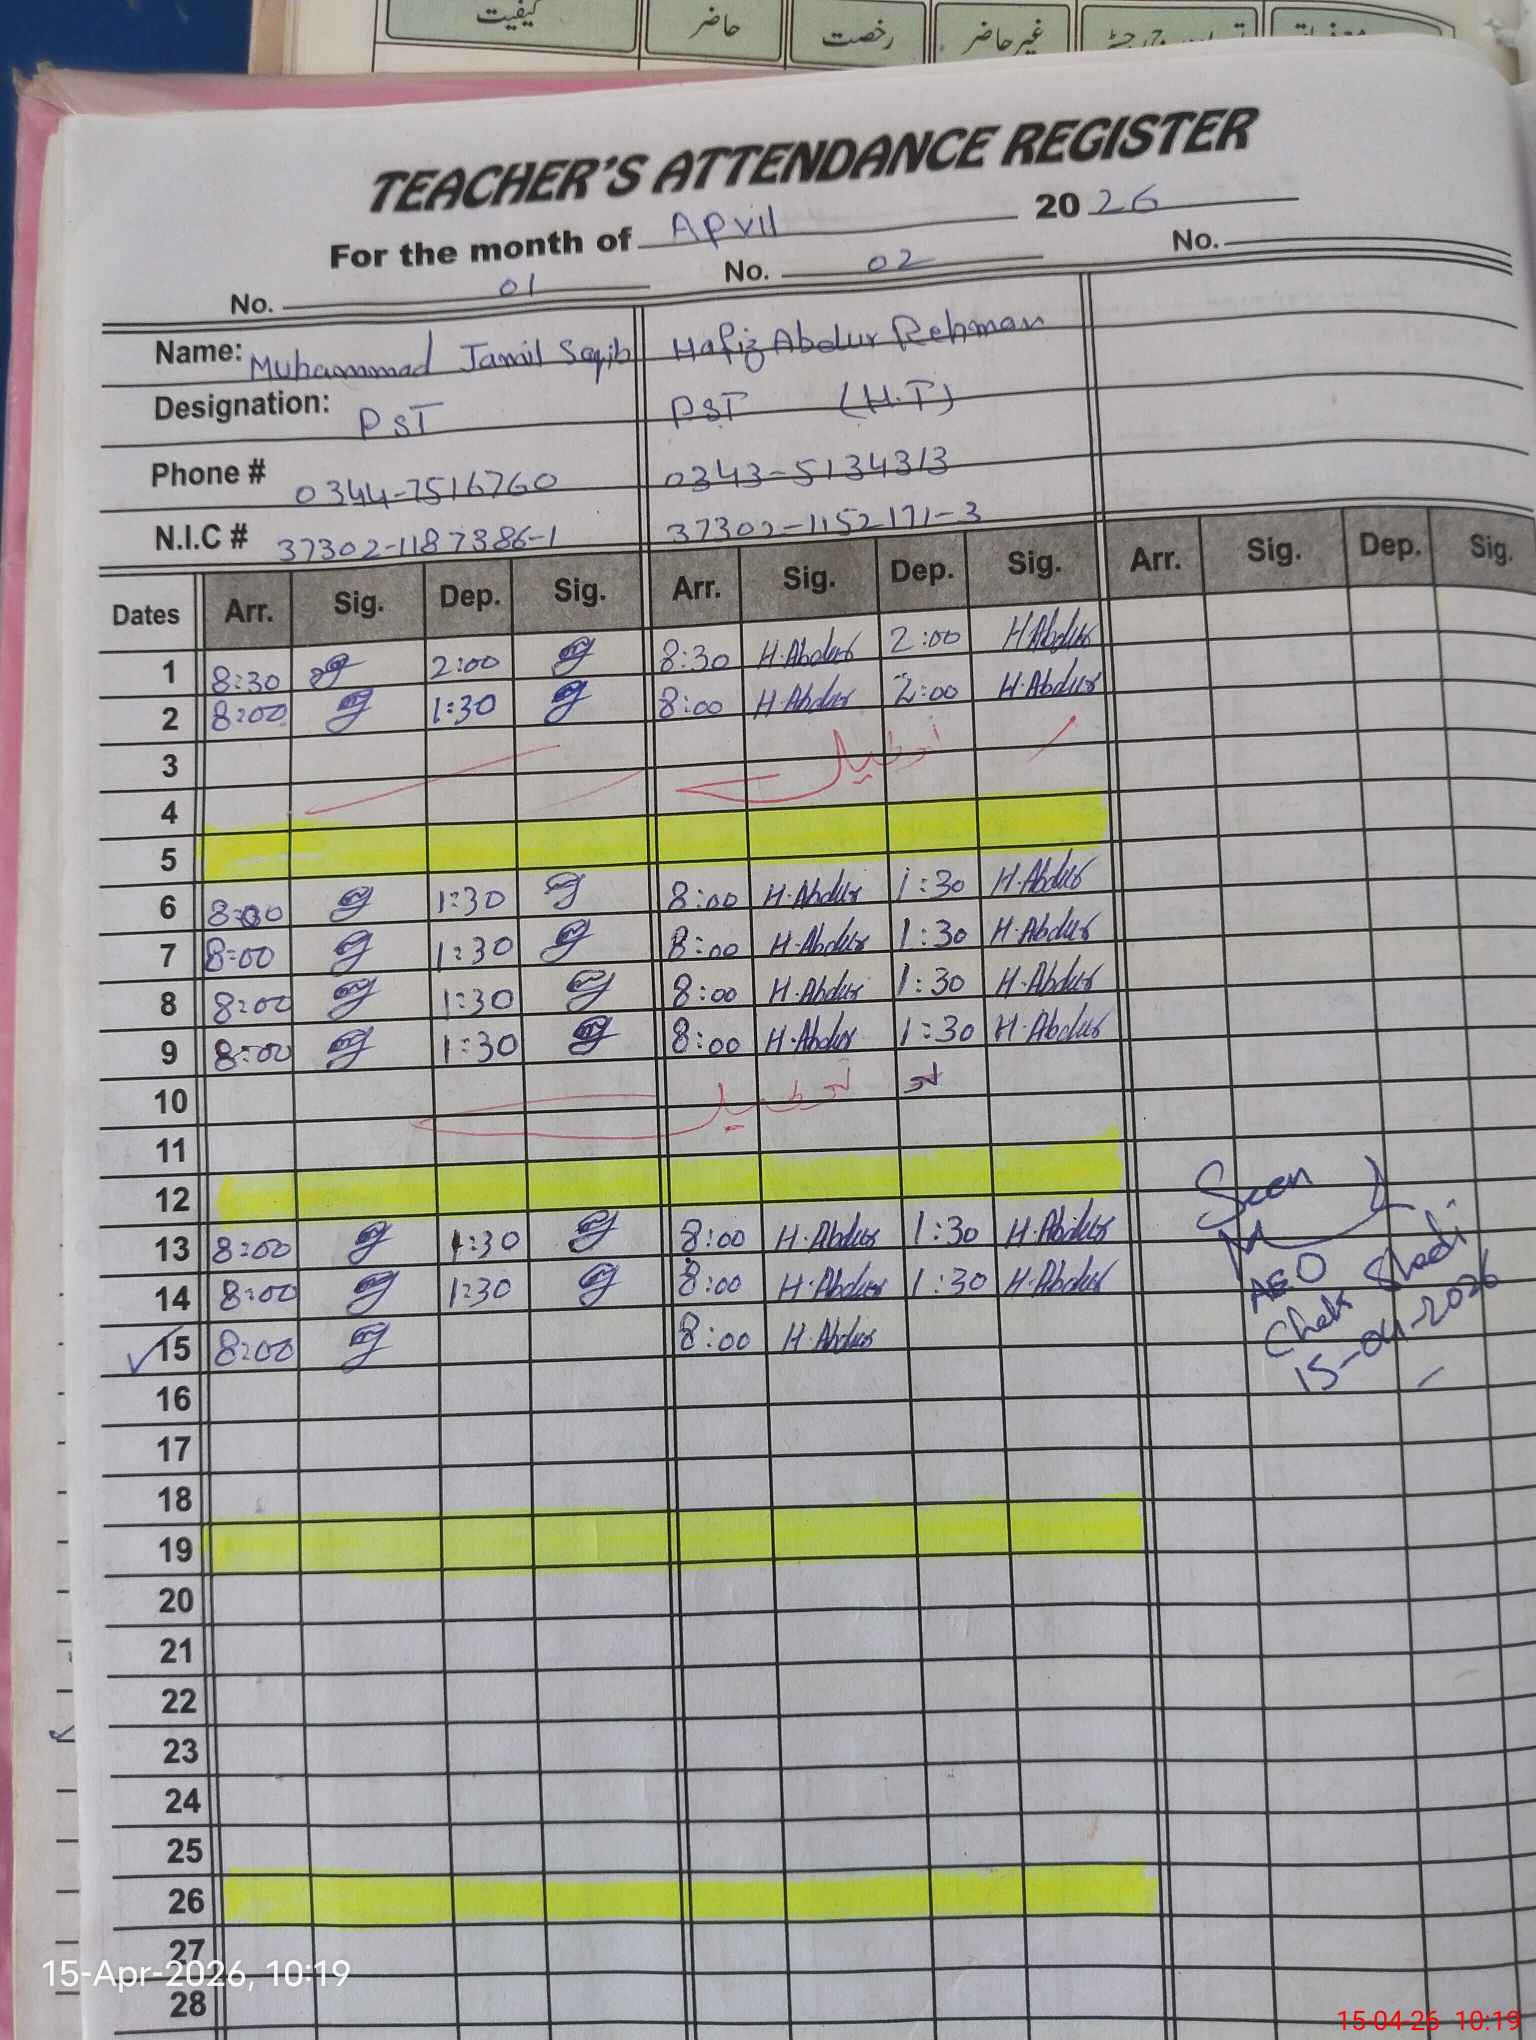 کیفیت حاضر رخصت غیر حاضر
TEACHER'S ATTENDANCE REGISTER
For the month of April 2026
No. 01 No. 02 No.
Name: Muhammad Jamil Saqib Hafiz Abdur Rehman
Designation: PST PST (H.T)
Phone # 0344-7516760 0343-5134313
N.I.C # 37302-1187386-1 37302-1152171-3
Dates Arr. Sig. Dep. Sig. Arr. Sig. Dep. Sig. Arr. Sig. Dep. Sig.
1 8:30 2:00 8:30 H.Abdur 2:00 H.Abdur
2 8:00 1:30 8:00 H.Abdur 2:00 H.Abdur
3
4
5
6 8:00 1:30 8:00 H.Abdur 1:30 H.Abdur
7 8:00 1:30 8:00 H.Abdur 1:30 H.Abdur
8 8:00 1:30 8:00 H.Abdur 1:30 H.Abdur
9 8:00 1:30 8:00 H.Abdur 1:30 H.Abdur
10
11
12
13 8:00 1:30 8:00 H.Abdur 1:30 H.Abdur
14 8:00 1:30 8:00 H.Abdur 1:30 H.Abdur
15 8:00 8:00 H.Abdur
Seen
AEO
Chak Shadi
15-04-2026
16
17
18
19
20
21
22
23
24
25
26
27
28
15-Apr-2026, 10:19
15-04-26 10:19